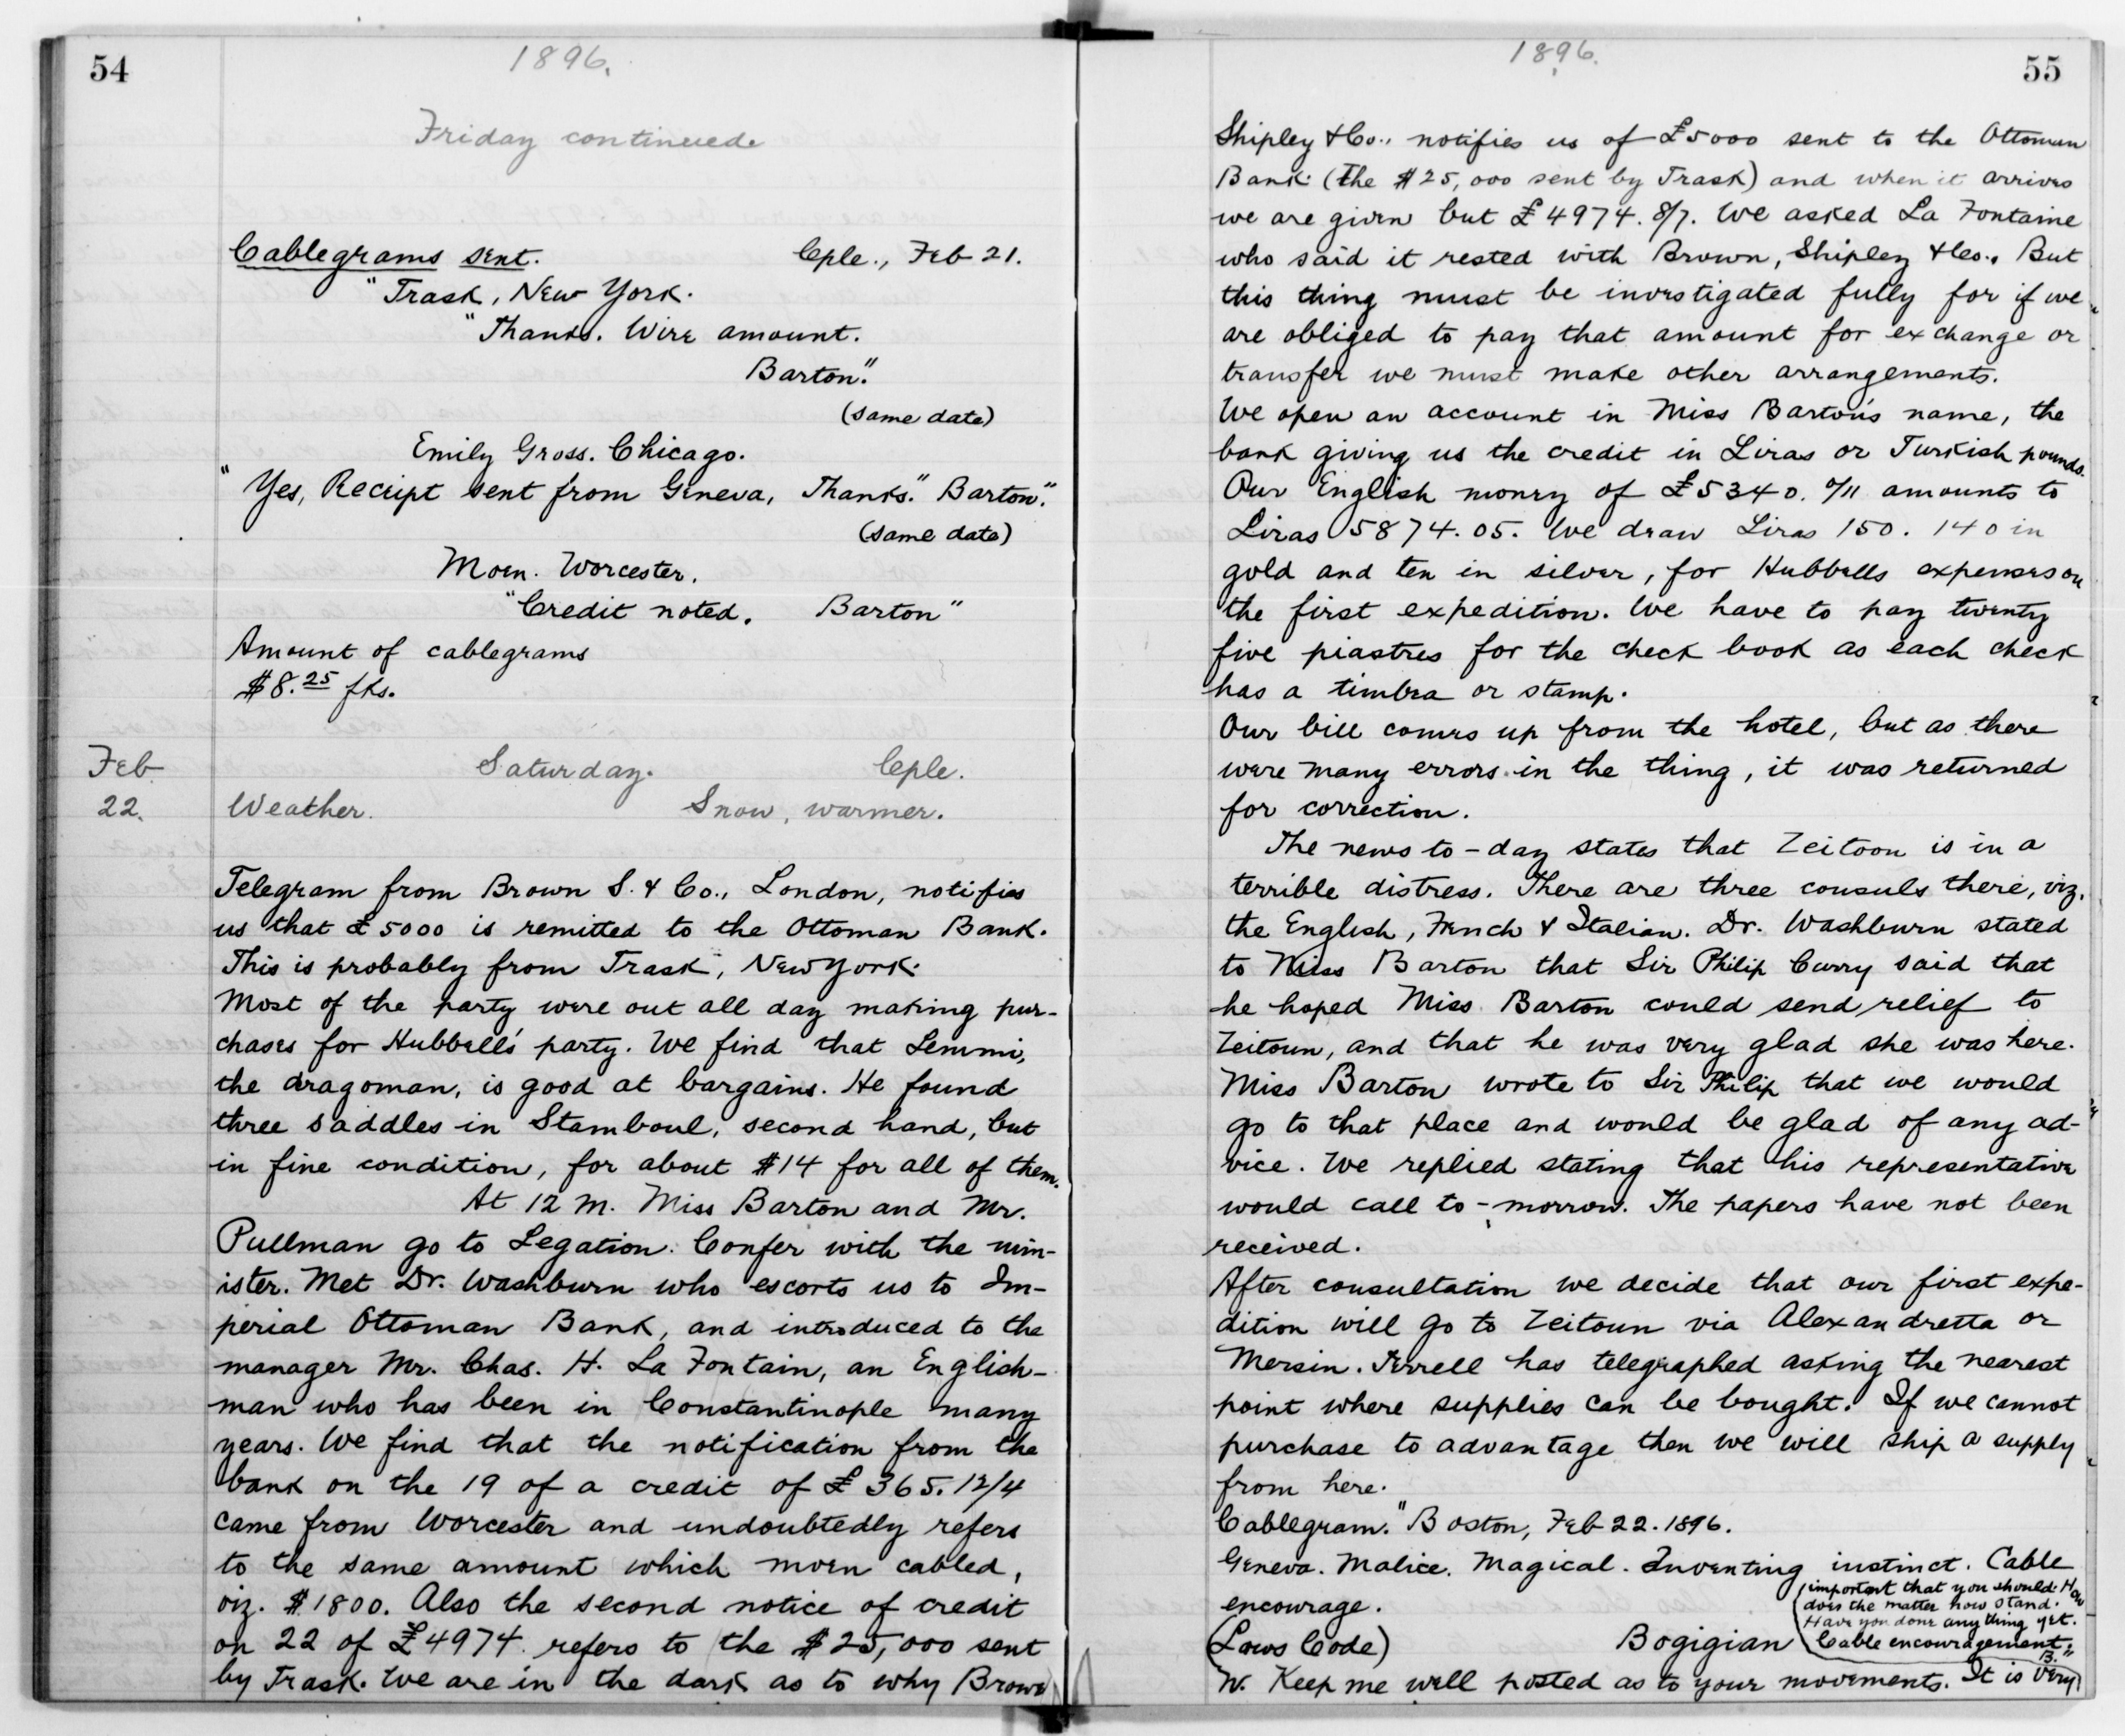 54
1896.
Friday continued
Cablegrams sent. Cple., Feb 21.
"Trask, New York.
"Thanks. Wire amount.
Barton."
(same date)
Emily Gross. Chicago.
"Yes, Receipt sent from Geneva, Thanks." Barton."
(same date)
Moen. Worcester.
"Credit noted. Barton"
Amount of cablegrams
$8.25 fks.
Feb. Saturday. Cple.
22. Weather. Snow, warmer.
Telegram from Brown S. & Co., London, notifies
us that £5000 is remitted to the Ottoman Bank.
This is probably from Trask, New York.
Most of the party were out all day making pur-
chases for Hubbell's party. We find that Lemmi,
the dragoman, is good at bargains. He found
three saddles in Stamboul, second hand, but
in fine condition, for about $14 for all of them.
At 12 m. Miss Barton and Mr.
Pullman go to Legation. Confer with the min-
ister. Met Dr. Washburn who escorts us to Im-
perial Ottoman Bank, and introduced to the
manager Mr. Chas. H. La Fontain, an English-
man who has been in Constantinople many
years. We find that the notification from the
bank on the 19 of a credit of £365.12/4
came from Worcester and undoubtedly refers
to the same amount which moen cabled,
viz. $1800. Also the second notice of credit
on 22 of £4974. refers to the $25,000 sent
by Trask. We are in the dark as to why Brown
1896.
55
Shipley & Co., notifies us of £5000 sent to the Ottoman
Bank. (The $25,000 sent by Trask) and when it arrives
we are given but £4974. 8/7. We asked La Fontaine
who said it rested with Brown, Shipley & Co., But
this thing must be investigated fully for if we
are obliged to pay that amount for exchange or
transfer we must make other arrangements.
We open an account in Miss Barton's name, the
bank giving us the credit in Liras or Turkish pounds.
Our English money of £5340. 0/11 amounts to
Liras 5874.05. We draw Liras 150. 140 in
gold and ten in silver, for Hubbells expenses on
the first expedition. We have to pay twenty
five piastres for the check book as each check
has a timbra or stamp.
Our bill comes up from the hotel, but as there
were many errors in the thing, it was returned
for correction.
The news to-day states that Zeitoon is in a
terrible distress. There are three consuls there, viz.
the English, French & Italian. Dr. Washburn stated
to Miss Barton that Sir Philip Curry said that
he hoped Miss Barton could send relief to
Zeitoun, and that he was very glad she was here.
Miss Barton wrote to Sir Philip that we would
go to that place and would be glad of any ad-
vice. We replied stating that his representative
would call to-morrow. The papers have not been
received.
After consultation we decide that our first expe-
dition will go to Zeitoun via Alexandretta or
Mersin. Terrell has telegraphed asking the nearest
point where supplies can be bought. If we cannot
purchase to advantage then we will ship a supply
from here.
Cablegram. "Boston, Feb 22. 1896.
Geneva. Malice. Magical. Inventing instinct. Cable
encourage.
(Laws Code) Bogigian
W. Keep me well posted as to your movements. It is very
important that you should. How
does the matter now stand.
Have you done anything yet.
Cable encouragement."
B.